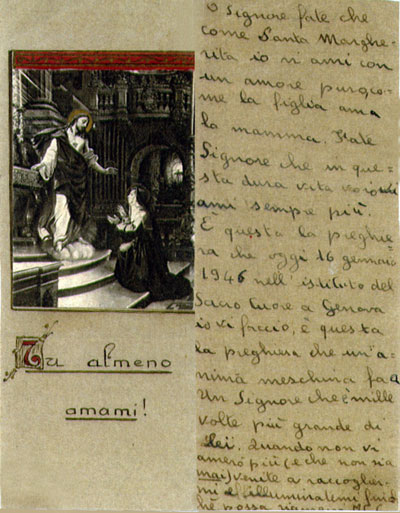 Tu almeno
amami!
O Signore fate che
come Santa Marghe-
rita io vi ami con
un amore puro, co-
me la figlia ama
la mamma. Fate
Signore che in que-
sta dura vita io vi
ami sempre più.
È questa la preghie
ra che oggi 16 gennaio
1946 nell'istituto del
Sacro Cuore a Genova
io vi faccio, è questa
la preghiera che un'a-
nima meschina fa a
Un Signore che è mille
volte più grande di
lei. Quando non vi
amerò più (e che non sia
mai) venite a raccoglier-
mi e illuminatemi finché
possa